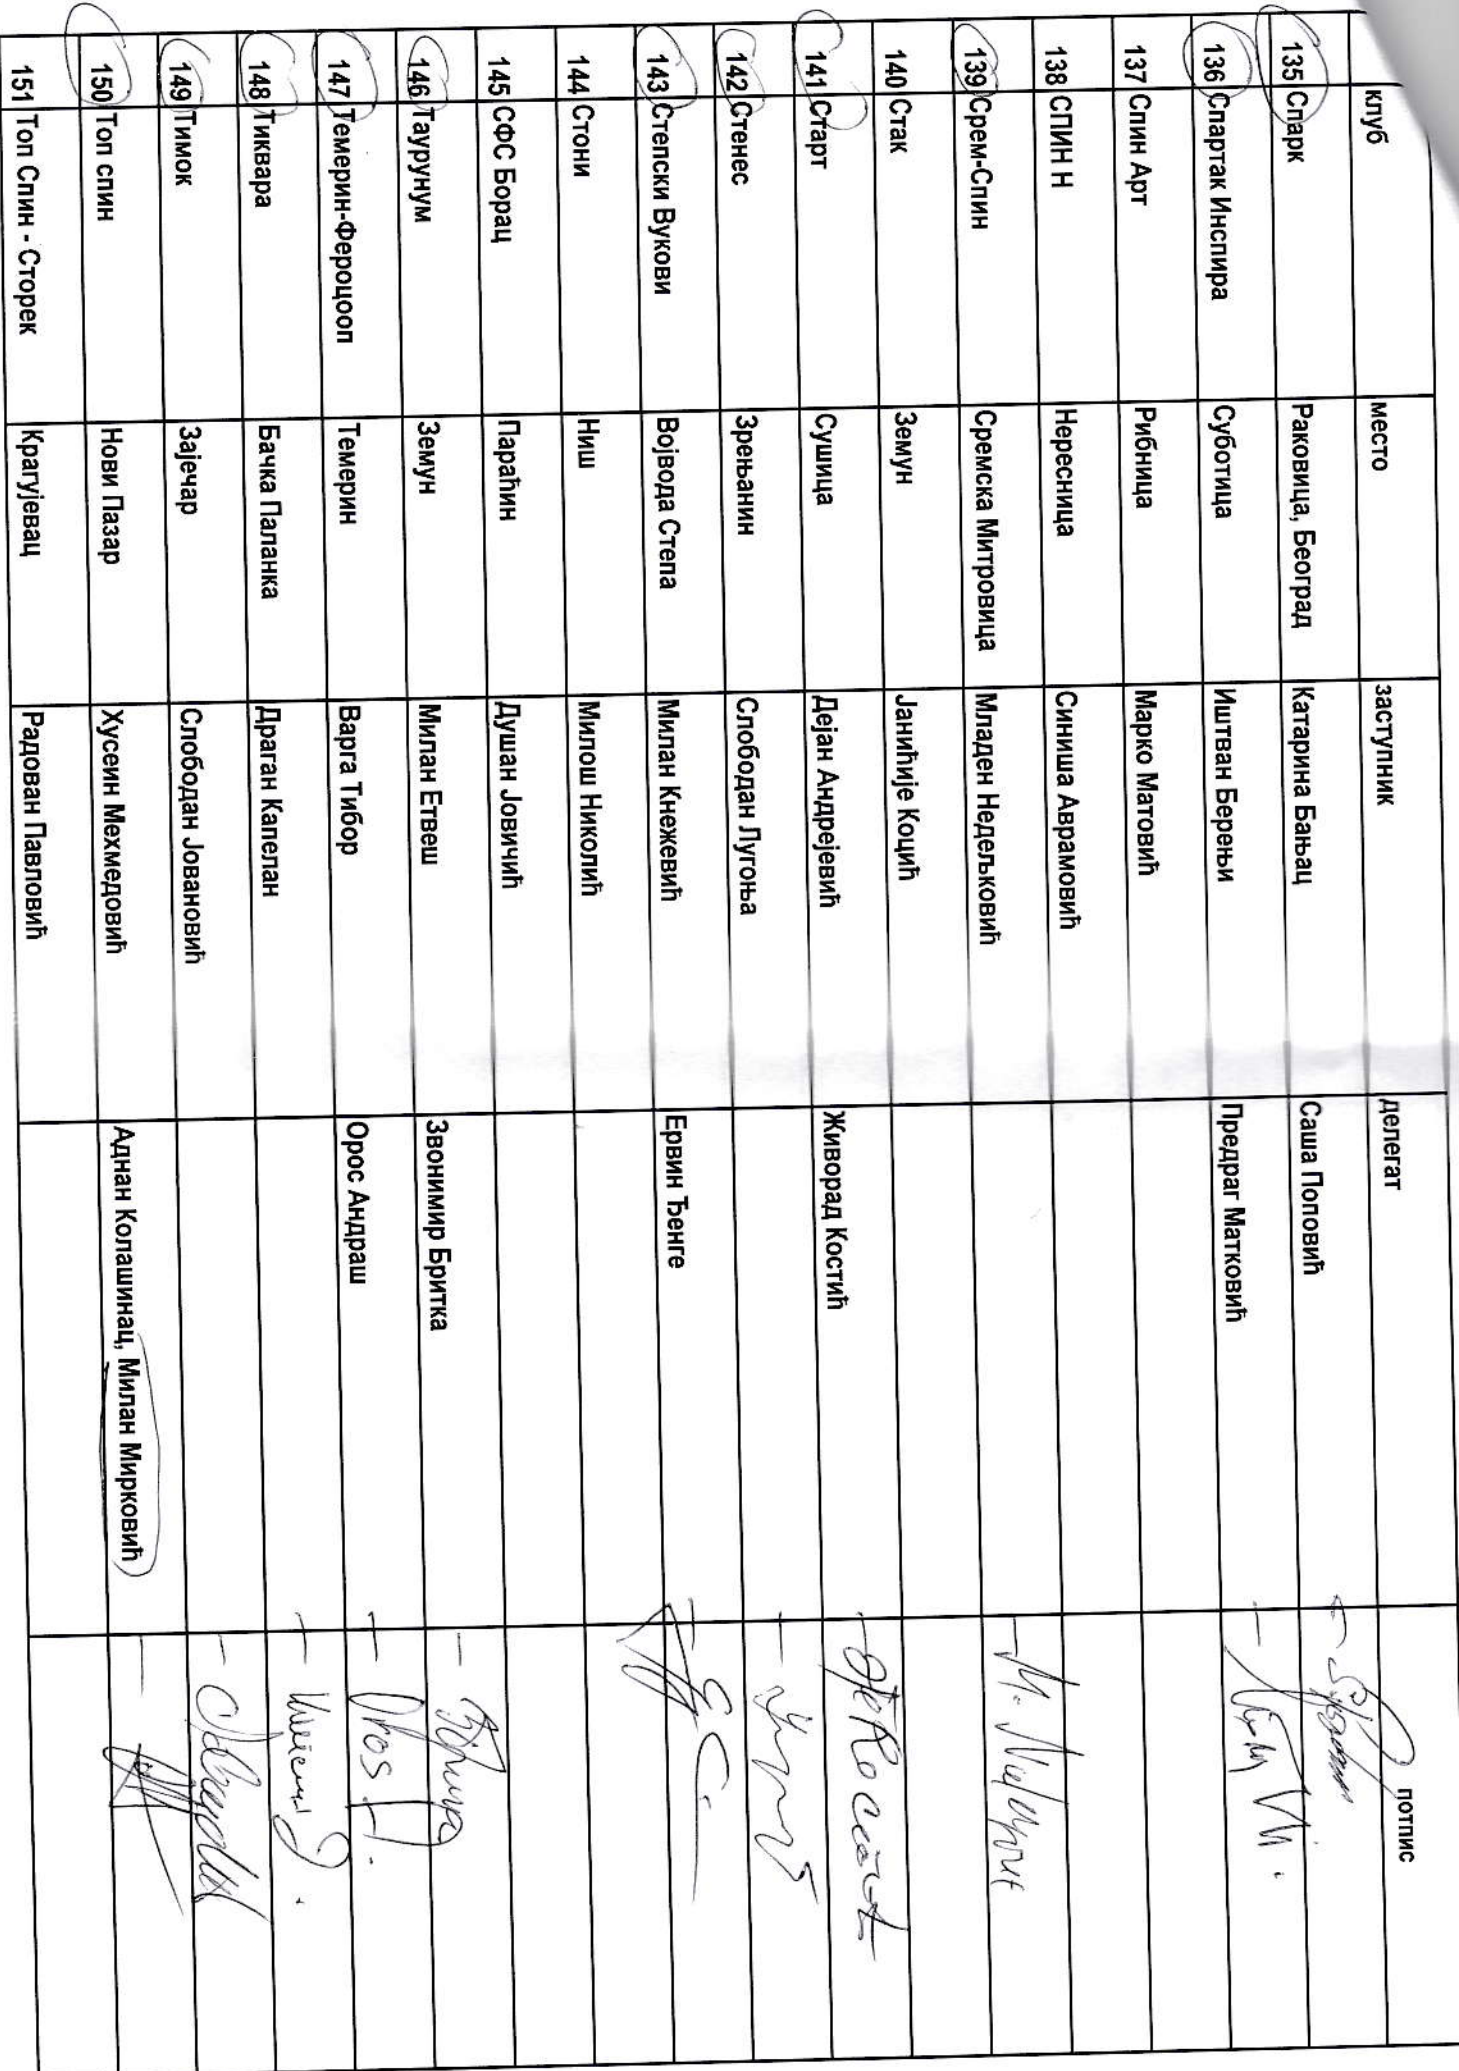 клуб место заступник делегат потпис
135 Спарк Раковица, Београд Катарина Бањац Саша Поповић
136 Спартак Инспира Суботица Иштван Берењи Предраг Матковић
137 Спин Арт Рибница Марко Матовић
138 СПИН Н Нересница Синиша Аврамовић
139 Срем-Спин Сремска Митровица Младен Недељковић
140 Стак Земун Јанићије Коцић
141 Старт Сушица Дејан Андрејевић Живорад Костић
142 Стенес Зрењанин Слободан Лугоња
143 Степски Вукови Војвода Степа Милан Кнежевић Ервин Ђенге
144 Стони Ниш Милош Николић
145 СФС Борац Параћин Душан Јовичић
146 Таурунум Земун Милан Етвеш Звонимир Бритка
147 Темерин-Фероцооп Темерин Варга Тибор Орос Андраш
148 Тиквара Бачка Паланка Драган Капелан
149 Тимок Зајечар Слободан Јовановић
150 Топ спин Нови Пазар Хусеин Мехмедовић Аднан Колашинац, Милан Мирковић
151 Топ Спин - Сторек Крагујевац Радован Павловић